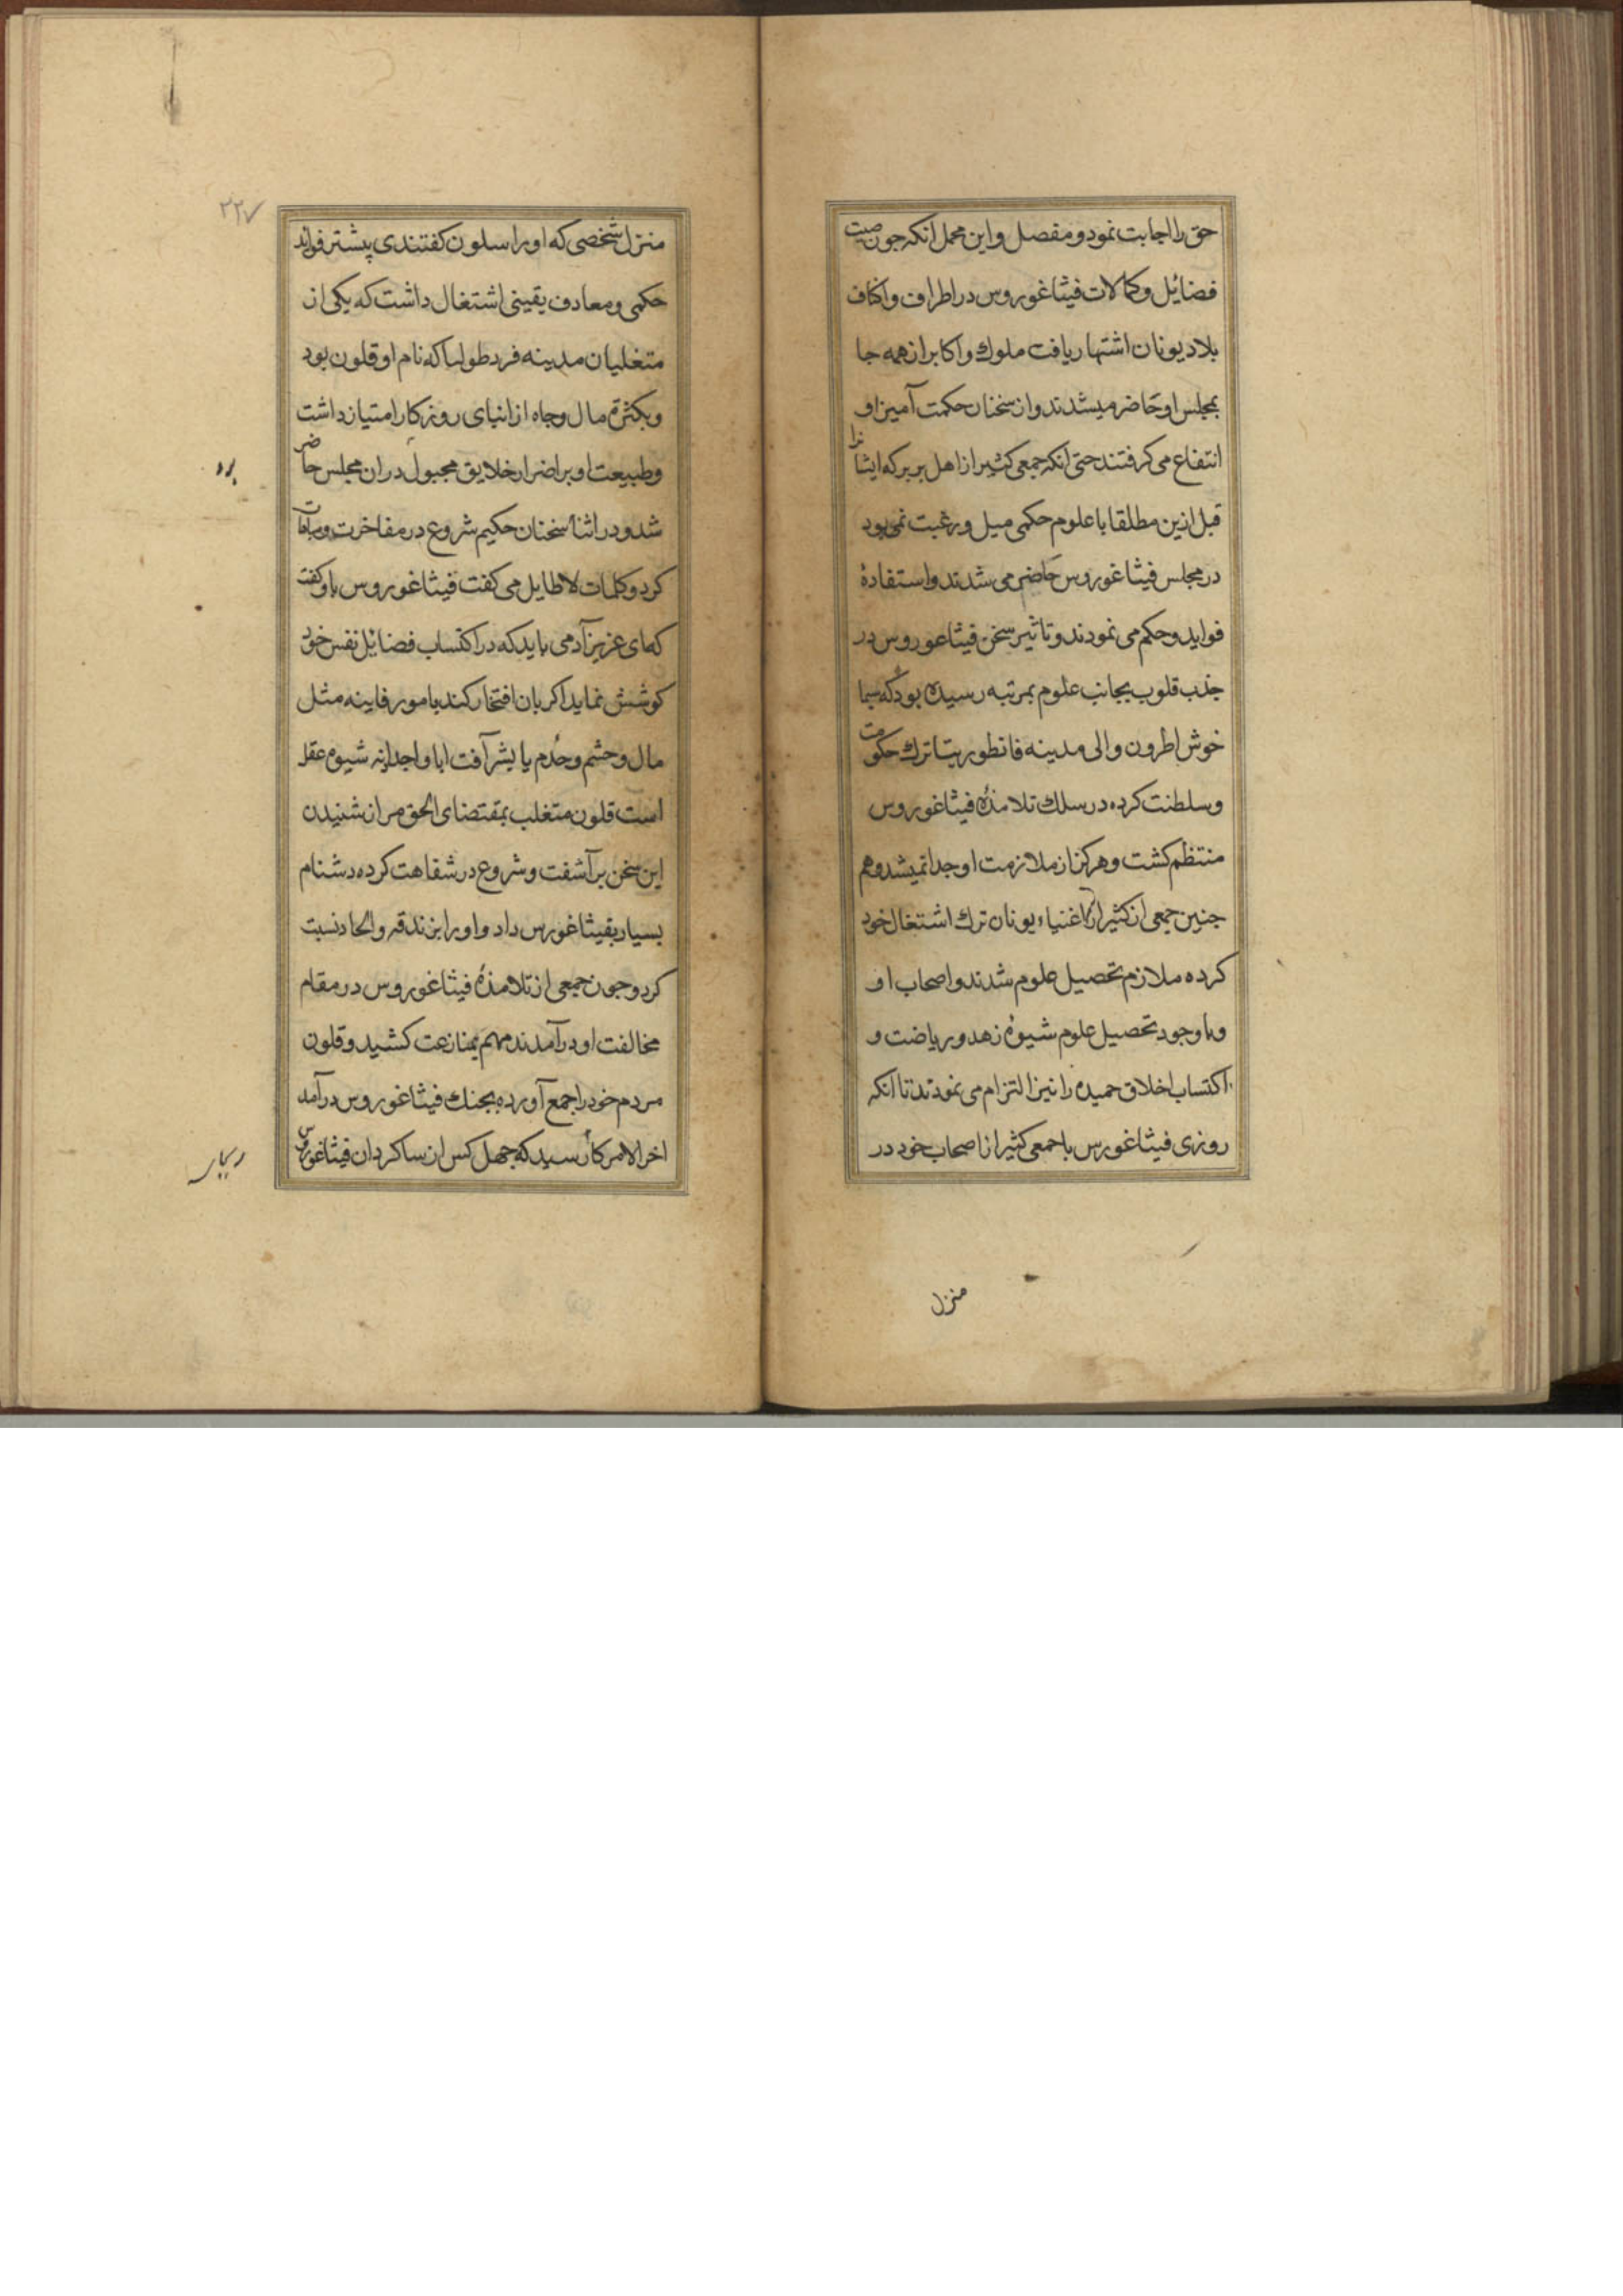 حق را اجابت نمود و مفصل و این مجمل انکه جون صیت
فضائل و کمالات فیثاغوروس در اطراف و اکناف
بلاد یونان اشتهار یافت ملوک و اکابر از همه جا
بمجلس او حاضر میشدند و از سخنان حکمت آمیز او
انتفاع می کرفتند حتی انکه جمعی کثیر از اهل بربر که ایشانرا
قبل ازین مطلقا با علوم حکمی میل و رغبت نمی بود
در مجلس فیثاغوروس حاضر می شدند و استفادهٔ
فواید و حکم می نمودند و تاثیر سخن فیثاغوروس در
جذب قلوب بجانب علوم بمرتبه رسیده بود که سیما
خوش اطرون والی مدینه فانطوریتا ترک حکومت
و سلطنت کرده در سلک تلامذهٔ فیثاغوروس
منتظم کشت و هرکز از ملازمت او جدا نمیشد و هم
جنین جمعی از کثیر از اغنیاء یونان ترک اشتغال خود
کرده ملازم تحصیل علوم شدند و اصحاب او
و با وجود تحصیل علوم شیوهٔ زهد و ریاضت و
اکتساب اخلاق حمیده را نیز التزام می نمودند تا انکه
روزی فیثاغورس با جمعی کثیر از اصحاب خود در
منزل
۲۲۷
منزل شخصی که او را سلون کفتندی پیشتر فواید
حکمی و معارف یقینی اشتغال داشت که یکی از
متغلبان مدینه فردطولیا که نام او قلون بود
و بکثرة مال و جاه از ابنای روزکار امتیاز داشت
و طبیعت او بر اضرار خلایق مجبول در ان مجلس حاضر
شد و در اثنا سخنان حکیم شروع در مفاخرت و مباهات
کرد و کلمات لاطایل می کفت فیثاغوروس باو کفت
که ای عزیز آدمی باید که در اکتساب فضائل نفس خود
کوشش نماید اکر بان افتخار کند بامور فاینه مثل
مال و حشم و خدم یا بشرآفت ابا و اجداد نه شیوه عقلا
است قلون متغلب بمقتضای الحق مر از شنیدن
این سخن بر آشفت و شروع در شقاهت کرده دشنام
بسیار بفیثاغورس داد و او را بزندقه و الحاد نسبت
کرد و جون جمعی از تلامذهٔ فیثاغوروس در مقام
مخالفت او در آمدند مهم بمنازعت کشید و قلون
مردم خود را جمع آورده بجنک فیثاغوروس در آمد
اخر الامر کار رسید که جهل کس از ساکردان فیثاغوروس